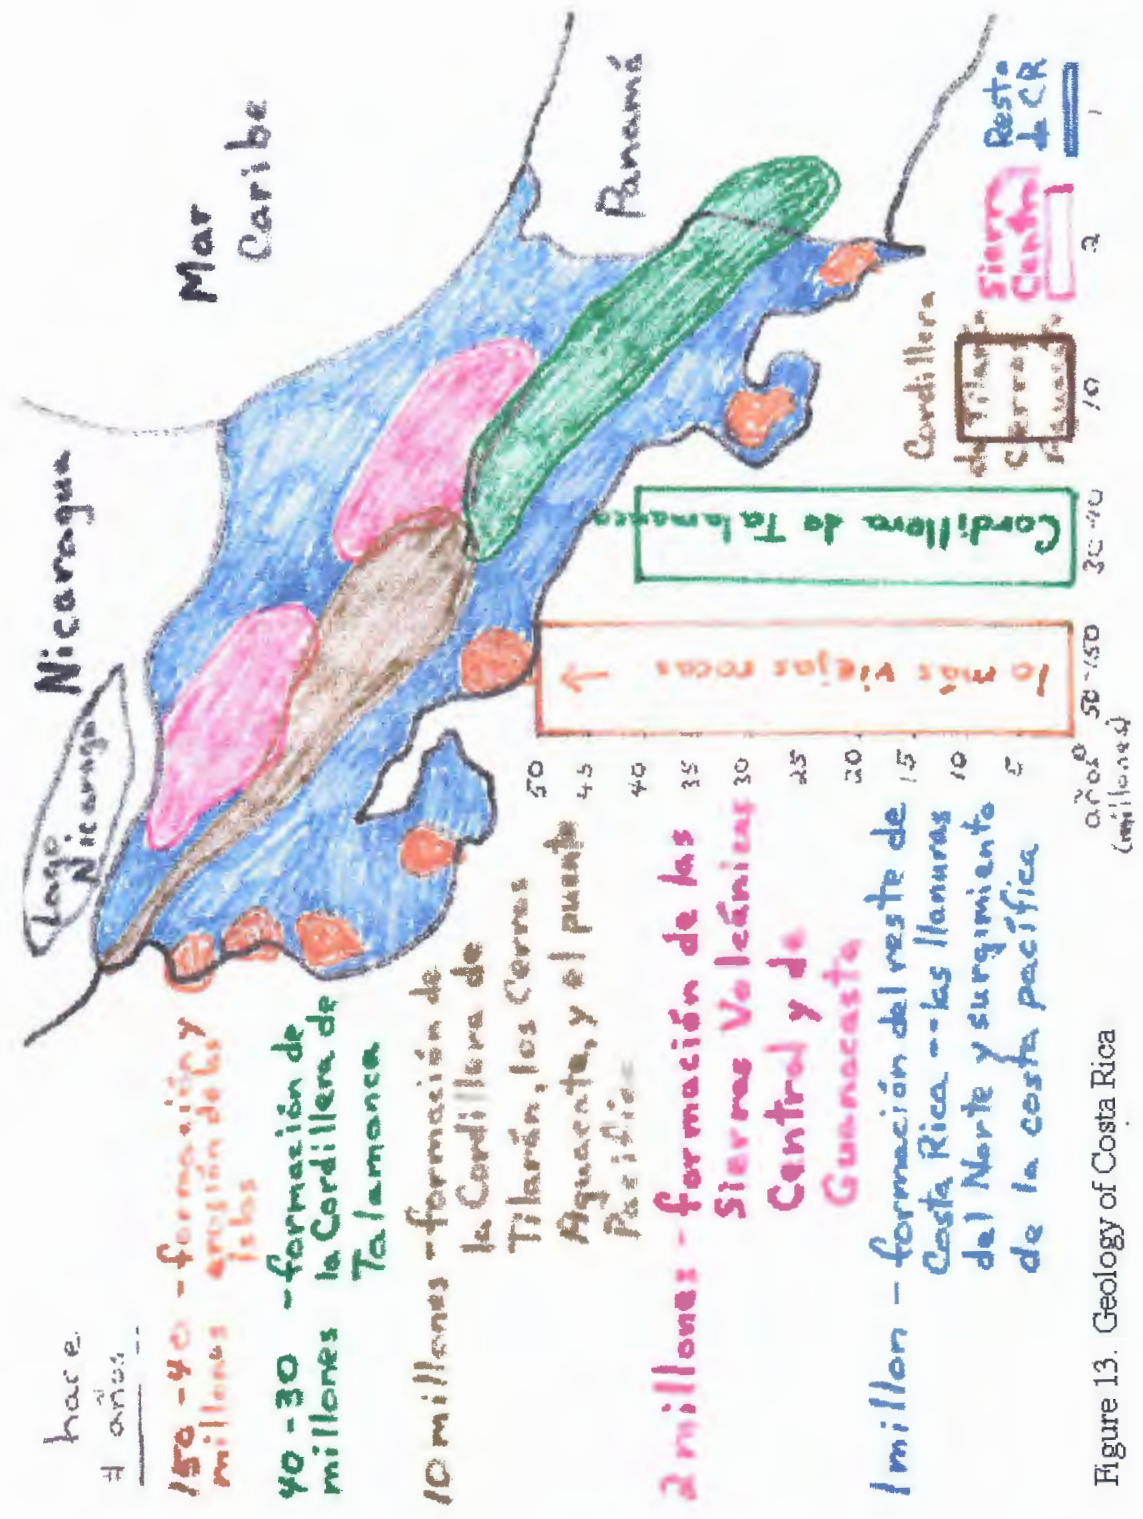 hace
# años
150-40 - formación y
millones erupción de las
Islas
40-30 - formación de
millones la Cordillera de
Talamanca
10 millones - formación de
la Cordillera de
Tilarán, los Cerros
Aguacate, y el puente
Pacífic
2 millones - formación de las
Sierras Volcánicas
Central y de
Guanacaste
1 millon - formación del resto de
Costa Rica -- las llanuras
del Norte y surgimiento
de la costa pacífica
Lago
Nicaragua
Nicaragua
Mar
Caribe
Panamá
50
45
40
35
30
25
20
15
10
5
0
años
(millones)
lo más viejas rocas →
50-150
Cordillera de Talamanca
30-40
Cordillera
de Tilarán
Cerros
Aguacate
10
Sierra
Centr
2
Resto
de CR
1
Figure 13. Geology of Costa Rica